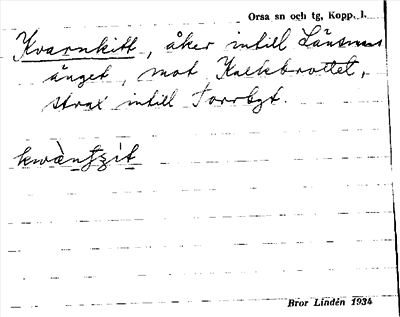 Orsa sn och tg, Kopp. l.
Kvarnkitt, åker intill Länsmans
änget, mot Kalkbrottet,
strax intill Torrbgt.
kwànţșit
Bror Lindén 1934